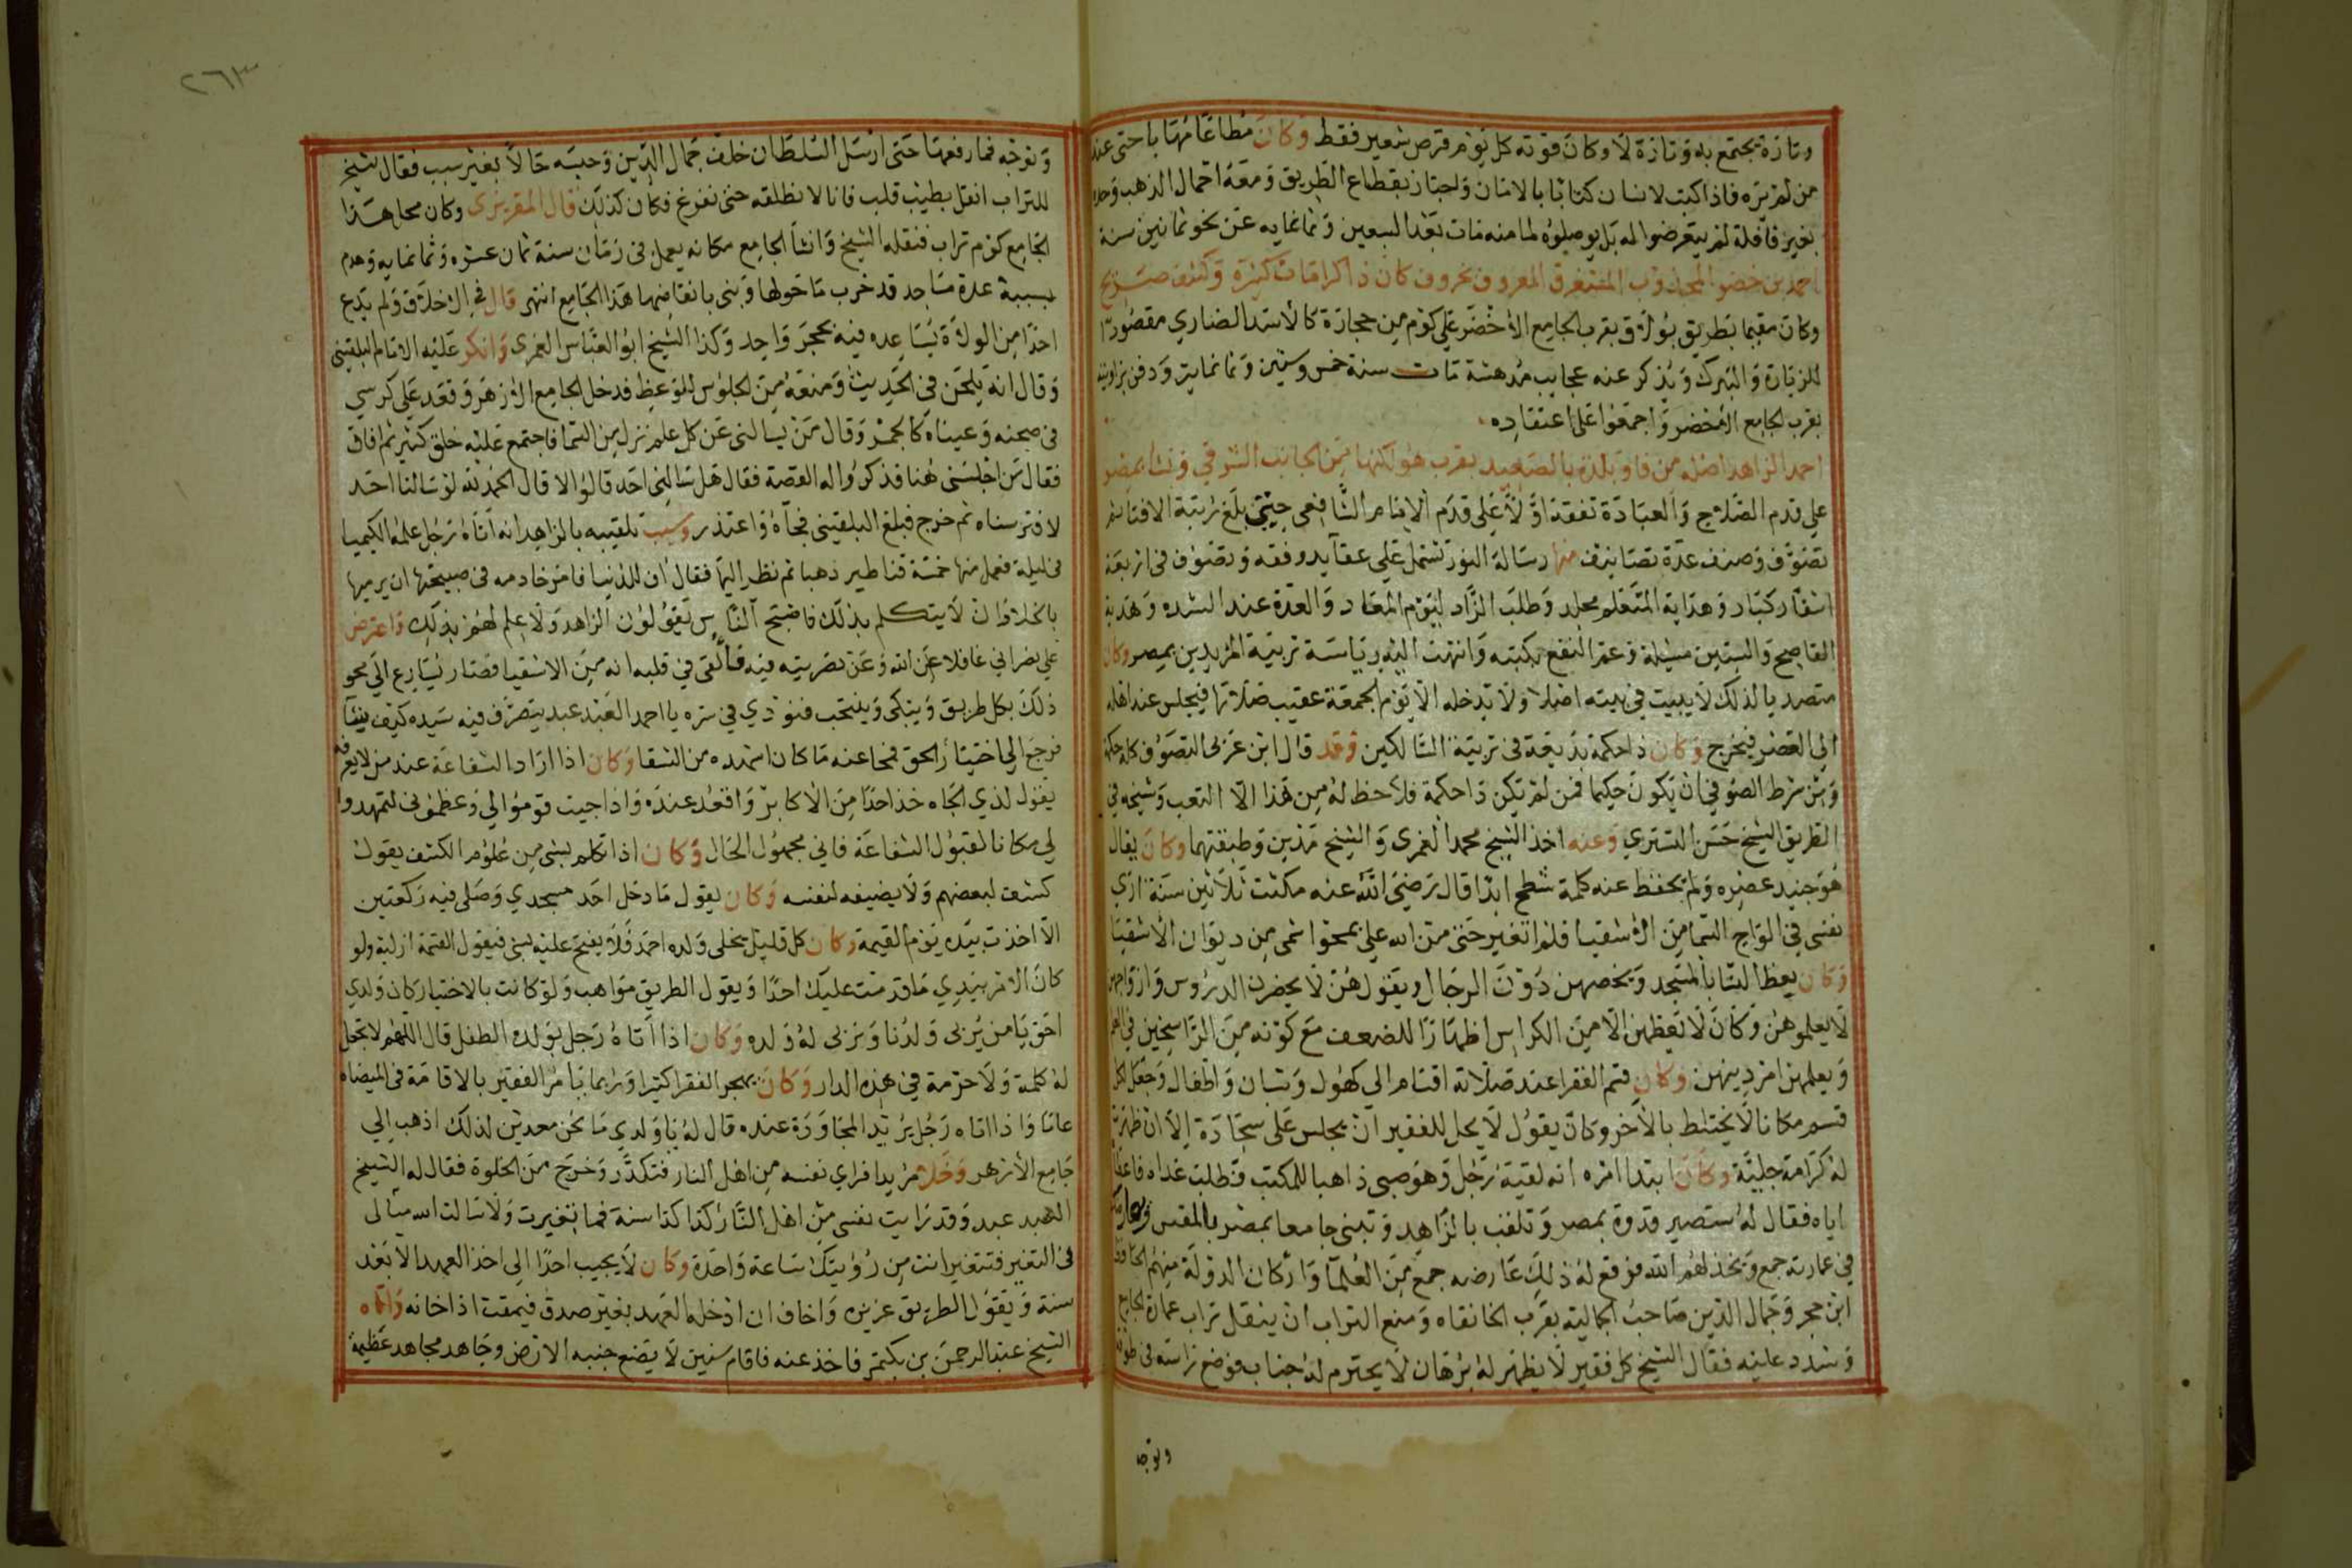 وتارة يجتمع به وتارة لا وكان قوته كل يوم قرص شعير فقط وكان مطاعا مهابا حتى عند
من لم يره فاذا كتب لانسان كتابا بالامان واجتاز بقطاع الطريق ومعه احمال الذهب وحده
بغير قافلة لم يتعرضوا له بل يوصلوه لمامنه مات بعد السبعين وثمانمايه عن نحو ثمانين سنة
احمد بن خضر المجذوب المستغرق المعروف بخروف كان ذا كرامات كثيرة وكشف صريح
وكان مقيما بطريق بولاق بقرب الجامع الأخضر على كوم من حجارة كالأسد الضاري مقصودا
للزيارة والتبرك ويذكر عنه عجايب مدهشة مات سنة خمس وستين وثمانماية ودفن بزاويته
بقرب الجامع الاخضر واجمعوا على اعتقاده.
احمد الزاهد اصله من فاو بلدة بالصعيد بقرب هو لكنها من الجانب الشرقي ونشا بمصر
على قدم الصلاح والعبادة تفقه اولا على قدم الامام الشافعي حتى بلغ رتبة الافتا ثم
تصوف وصنف عدة تصانيف منها رسالة النور تشتمل على عقايد وفقه وتصوف في اربعة
اسفار كبار وهداية المتعلم مجلد وطلب الزاد ليوم المعاد والعدة عند الشده وهدية
الناصح والستين مسئلة وعم النفع بكتبه وانتهت اليه رياسة تربية المريدين بمصر وكان
متصديا لذلك لا يبيت في بيته اصلا ولا يدخله الا يوم الجمعة عقيب صلاتها فيجلس عند اهله
الى العصر فيخرج وكان ذا حكمة بديعة في تربية السالكين وقد قال ابن عربى التصوف كله حكمة
ومن شرط الصوفي ان يكون حكيما فمن لم يكن ذا حكمة فلا حظ له من هذا الا التعب وشيخه في
الطريق الشيخ حسن التستري وعنه اخذ الشيخ محمد الغمرى والشيخ مدين وطبقتهما وكان يقال
هو جنيد عصره ولم يحفظ عنه كلمة شطح ابدا قال رضي الله عنه مكثت ثلاثين سنة ارى
نفسى في الواح السما من الاشقيا فلم اتغير حتى من الله على بمحو اسمى من ديوان الاشقيا
وكان يعظ النسا بالمسجد ويخصهن دون الرجال ويقول هن لا يحضرن الدروس وازواجهن
لا يعلموهن وكان لا يعظهن الا من الكراس اظهارا للضعف مع كونه من الراسخين في العلم
ويعلمهن امر دينهن وكان قسم الفقرا عند صلاته اقسام الى كهول وشبان واطفال وجعل لكل
قسم مكانا لا يختلط بالآخر وكان يقول لا يحل للفقير ان يجلس على سجادة إلا ان ظهرت
له كرامة جلية وكان ابتدا امره انه لقيه رجل وهو صبى ذاهبا للمكتب وطلب غداه فاعطاه
اياه فقال له ستصير قدوة بمصر وتلقب بالزاهد وتبنى جامعا بمصر بالمقس ويعارضك
في عمارته جمع ويخذلهم الله فوقع له ذلك عارضه جمع من العلما واركان الدولة منهم الحافظ
ابن حجر وجمال الدين صاحب الجمالية بقرب الخانقاه ومنع التراب ان ينقل تراب عمارة الجامع
وشدد عليه فقال الشيخ كل فقير لا يظهر له برهان لا يحترم له جناب فوضع راسه في طوقه
وتوجه
٢٦٣
وتوجه فما رفعها حتى ارسل السلطان خلف جمال الدين وحبسه حالا بغير سبب فقال الشيخ
للتراب انقل بطيب قلب فانا لا نطلقه حتى نفرغ فكان كذلك قال المقريزى وكان محل هذا
الجامع كوم تراب فنقله الشيخ وانشا الجامع مكانه يعمل فى رمضان سنة ثمان عشره وثمانمايه وهدم
بسببه عدة مساجد قد خرب ما حولها وبنى بانقاضها هذا الجامع انتهى قال في الاخلاق ولم يدع
احدا من الولاة يساعده فيه بحجر واحد وكذا الشيخ ابو العباس الغمرى وانكر عليه الامام البلقيني
وقال انه يلحن في الحديث ومنعه من الجلوس للوعظ فدخل الجامع الازهر وقعد على كرسي
فى صحنه وعيناه كالجمر وقال من يسالنى عن كل علم نزل من السما فاجتمع عليه خلق كثير ثم افاق
فقال من اجلسنى هنا فذكروا له القصة فقال هل سالنى احد قالوا لا قال الحمد لله لو سالنا احد
لافترسناه ثم خرج فبلغ البلقينى فجاه واعتذر وسبب تلقيبه بالزاهد انه اتاه رجل علمه الكيميا
فى ليلة فعمل منها خمسة قناطير ذهبا ثم نظر اليها فقال اف للدنيا فامر خادمه فى صبيحتها ان يرميها
بالخلا وان لا يتكلم بذلك فاصبح الناس يقولون الزاهد ولا علم لهم بذلك واعترض
على نصراني غافلا عن الله وعن تصريفه فيه فالقى في قلبه انه من الاشقيا فصار يسارع الى محو
ذلك بكل طريق ويبكى وينتحب فنودي في سره يا احمد العبد عبد يتصرف فيه سيده كيف يشآ
فرجع الي اختيار الحق فمحا عنه ما كان اشهده من الشقا وكان اذا اراد الشفاعة عند من لا يعرفه
يقول لذي الجاه خذ احدا من الاكابر واقعد عنده واذا جيت قوموا لي وعظمونى لتمهدوا
لي مكانا لقبول الشفاعة فاني مجهول الحال وكان اذا تكلم بشى من علوم الكشف يقول
كشف لبعضهم ولا يضيفه لنفسه وكان يقول ما دخل احد مسجدي وصلى فيه ركعتين
الا اخذت بيده يوم القيمة وكان كل قليل يخلى ولده احمد فلا يفتح عليه بشى فيقول القسمة ازلية ولو
كان الامر بيدي ما قدمت عليك احدا ويقول الطريق مواهب ولو كانت بالاختيار كان ولدي
احق يامن يربى ولدنا ونربى له ولده وكان اذا اتاه رجل بولده الطفل قال اللهم لا تجعل
له كلمة ولا حرمة في هذه الدار وكان يهجر الفقرا كثيرا وربما يامر الفقير بالاقامة فى الميضاه
عاما واذا اتاه رجل يريد المجاورة عنده قال له ياولدي ما نحن معدين لذلك اذهب إلي
جامع الازهر وخلا مريدا فراي نفسه من اهل النار فتكدر وخرج من الخلوة فقال له الشيخ
العبد عبد وقد رايت نفسى من اهل النار كذا كذا سنة فما تغيرت ولا سالت الله تعالى
فى التغير فتتغير انت من رؤيتك ساعة واحدة وكان لا يجيب احدا الى اخذ العهد الا بعد
سنة ويقول الطريق عزيزه واخاف ان ادخله العهد بغير صدق فيمقت اذا خانه واتاه
الشيخ عبد الرحمن بن بكتمر فاخذ عنه فاقام سنين لا يضع جنبه الارض وجاهد مجاهدة عظيمة